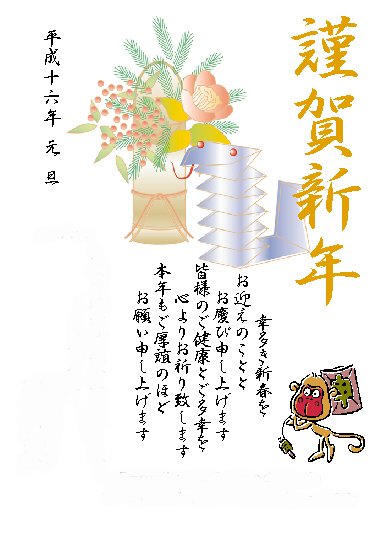 謹賀新年
幸多き新春を
お迎えのことと
お慶び申し上げます
皆様のご健康とご多幸を
心よりお祈り致します
本年もご厚誼のほど
お願い申し上げます
平成十六年 元旦
申